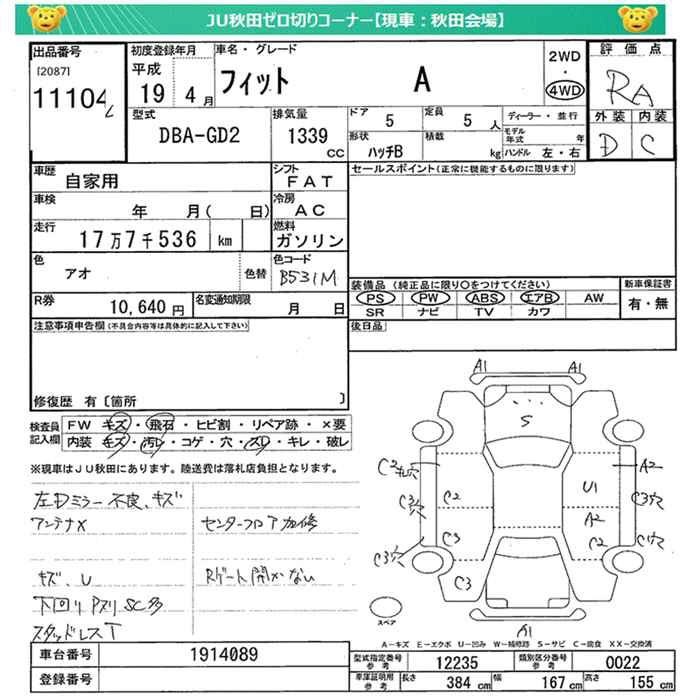 JU秋田ゼロ切りコーナー【現車：秋田会場】
出品番号 初度登録年月 車名・グレード 評価点
[2087] 平成 フィット A 2WD・4WD RA
11104 19 4月
型式 排気量 ドア 5 定員 5人 ディーラー・並行 外装 内装
DBA-GD2 1339 CC 形状 ハッチB 積載 kg モデル年式 年 D C
ハンドル 左・右
車歴 自家用 シフト FAT セールスポイント(正常に機能するものに限ります)
車検 年 月( 日) 冷房 AC
走行 17万7千536 km 燃料 ガソリン
色 アオ 色替 色コード B531M
装備品 (純正品に限り○をつけてください) 新車保証書
R券 10,640円 名変通知期限 月 日 PS PW ABS エアB AW 有・無
SR ナビ TV カワ
注意事項申告欄(不具合内容等は具体的に記入して下さい) 後日品
修復歴 有〔箇所 〕
検査員記入欄 FW キズ・飛石・ヒビ割・リペア跡・×要
内装 キズ・汚レ・コゲ・穴・スレ・キレ・破レ
※現車はJU秋田にあります。陸送費は落札店負担となります。
左Dミラー不良、キズ
アンテナX センターフロア加修
キズ、U Rゲート開かない
下回り Pズリ SC多
スタッドレスT
A1 A1
S
C2 キレ穴 A2
C2 U1 C3穴
C3穴 A2
C3 C2 C1ケ
C3穴
C3
スペア A1
A-キズ E-エクボ U-凹み W-補修跡 S-サビ C-腐食 XX-交換済
車台番号 1914089 型式指定番号 参考 12235 類別区分番号 参考 0022
登録番号 車庫証明用 参考 長さ 384 cm 幅 167 cm 高さ 155 cm